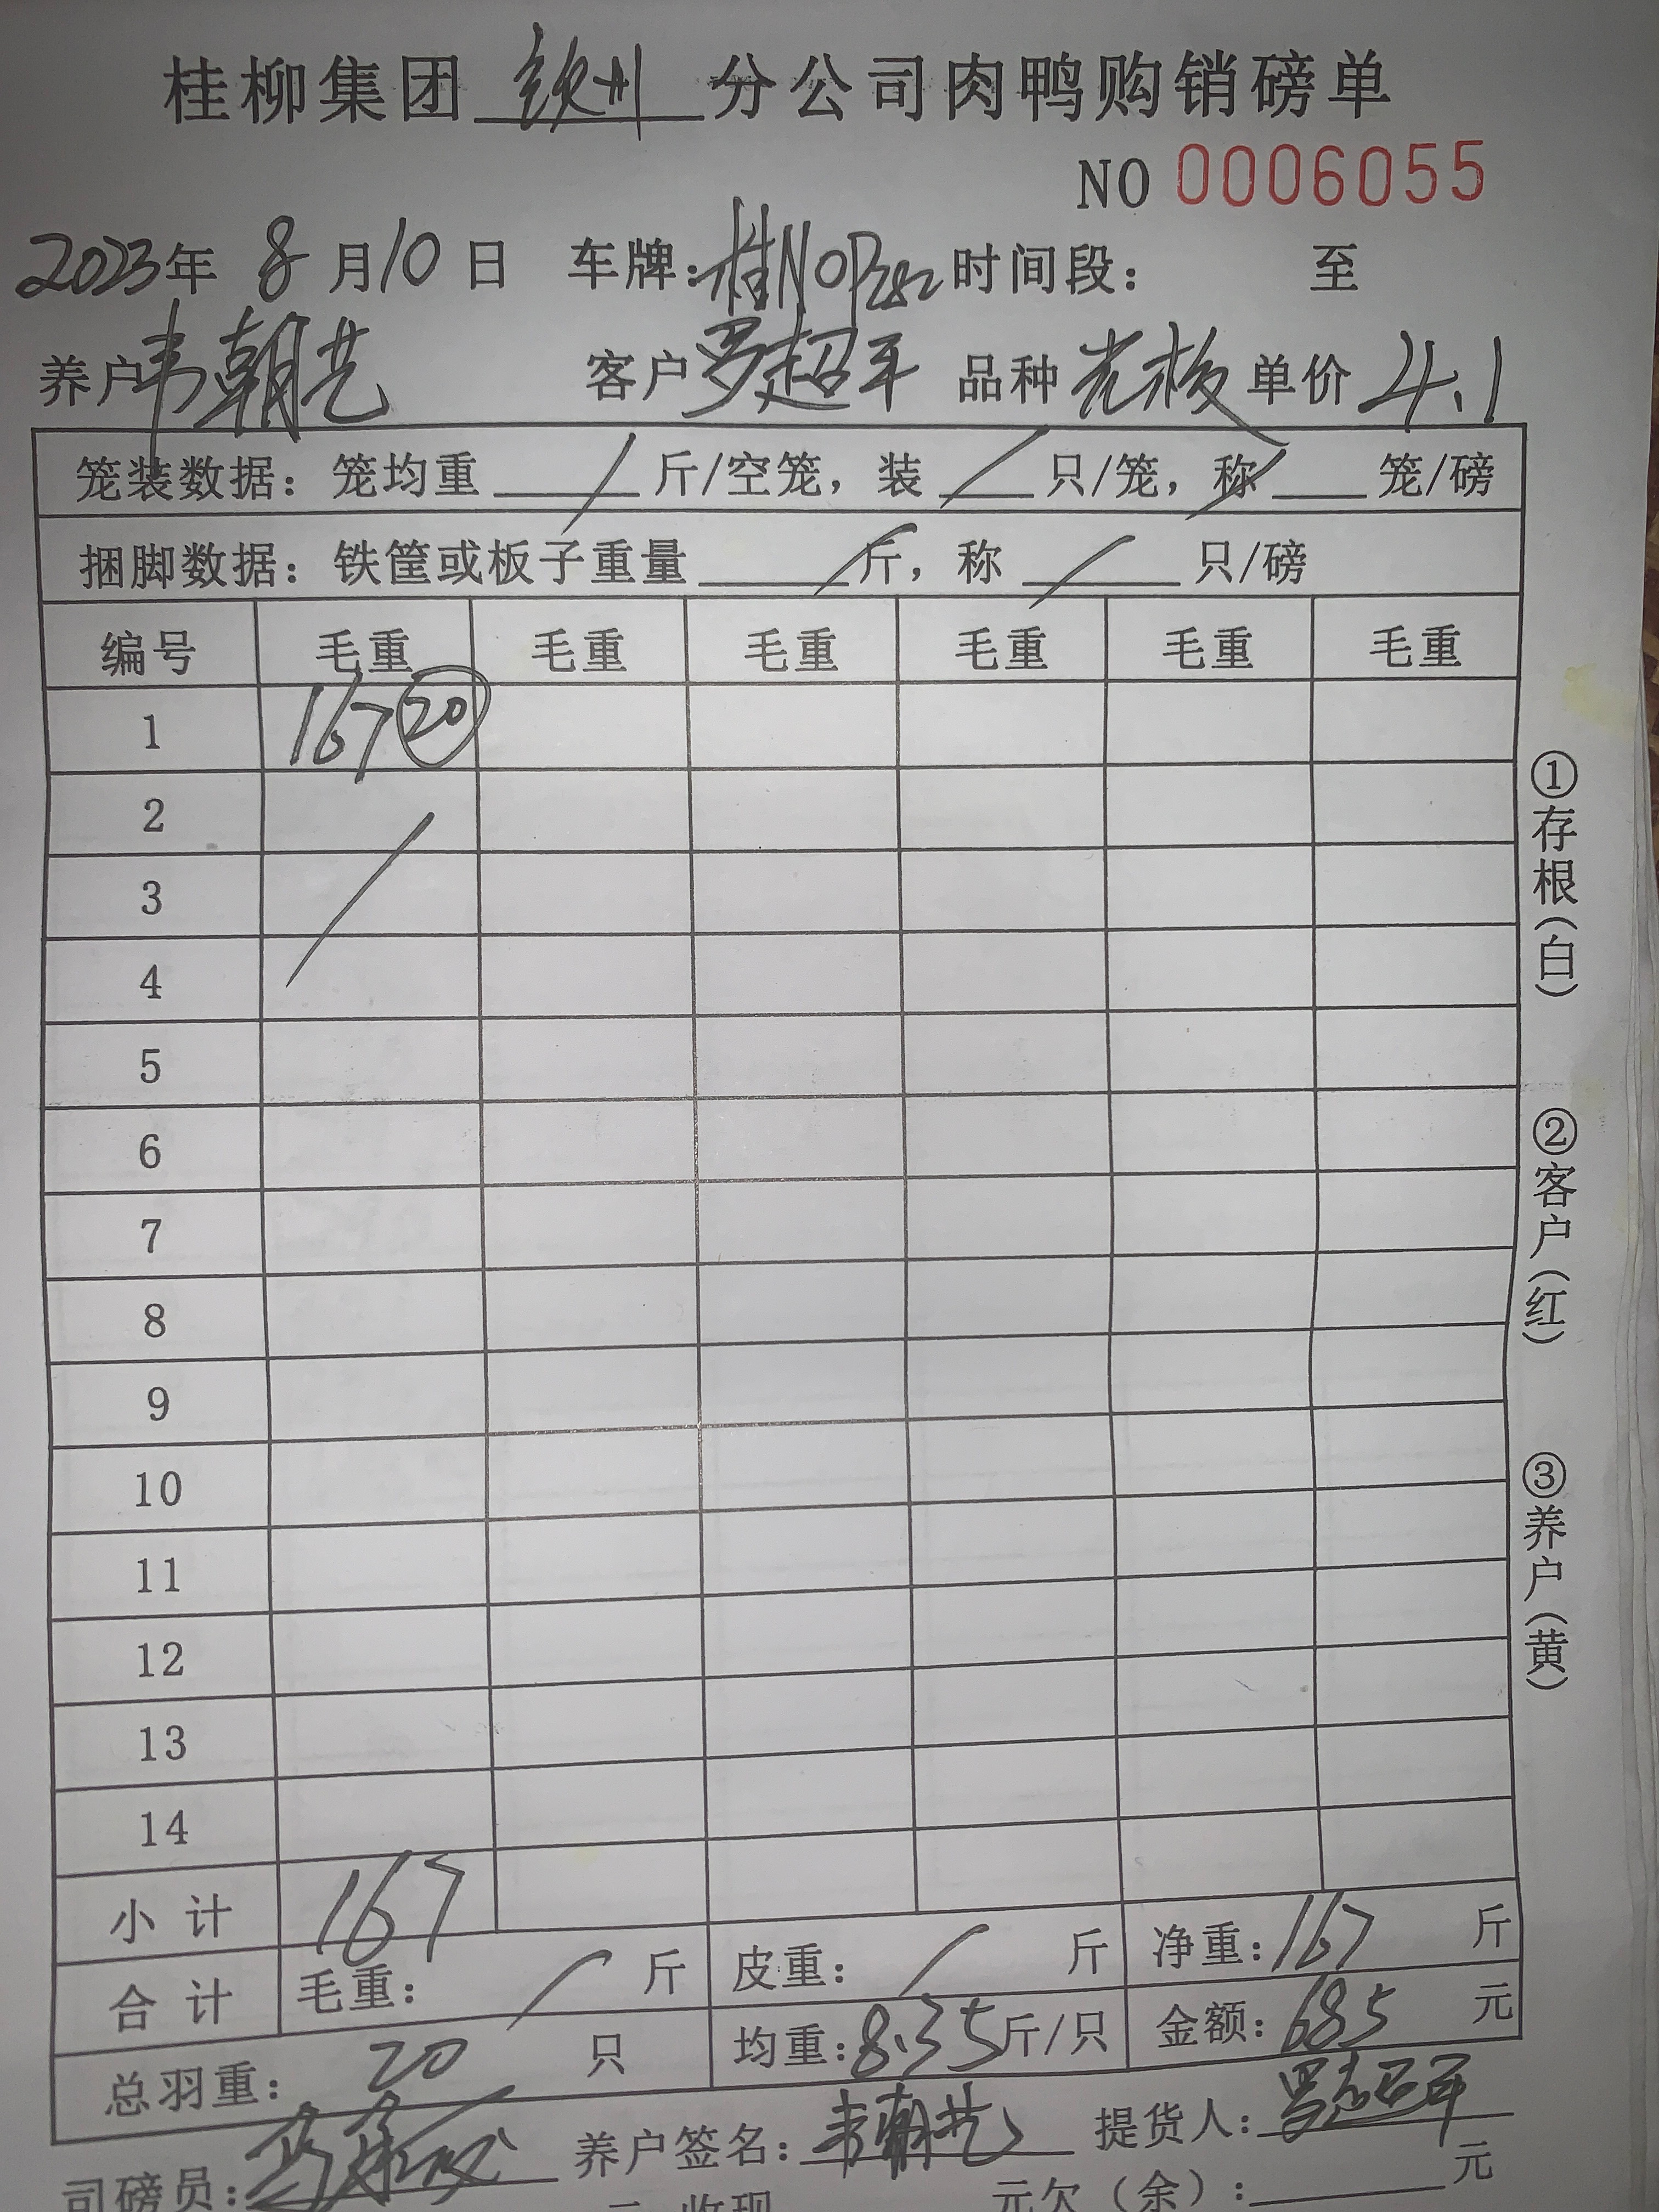 桂柳集团 钦州 分公司肉鸭购销磅单
NO 0006055
2023年 8 月 10 日 车牌: 桂NOP 时间段: 至
养户 韦朝艺 客户 罗超平 品种 单价 4.1
笼装数据: 笼均重 / 斤/空笼, 装 / 只/笼, 称 / 笼/磅
捆脚数据: 铁筐或板子重量 / 斤, 称 / 只/磅
编号 毛重 毛重 毛重 毛重 毛重 毛重
1 167 20
2
3
4
5
6
7
8
9
10
11
12
13
14
小计 167
合计 毛重: / 斤 皮重: / 斤 净重: 167 斤
总羽重: 20 只 均重: 8.35 斤/只 金额: 685 元
司磅员: 养户签名: 韦朝艺 提货人: 罗超平
元 收现 元欠(余): 元
①存根(白)
②客户(红)
③养户(黄)